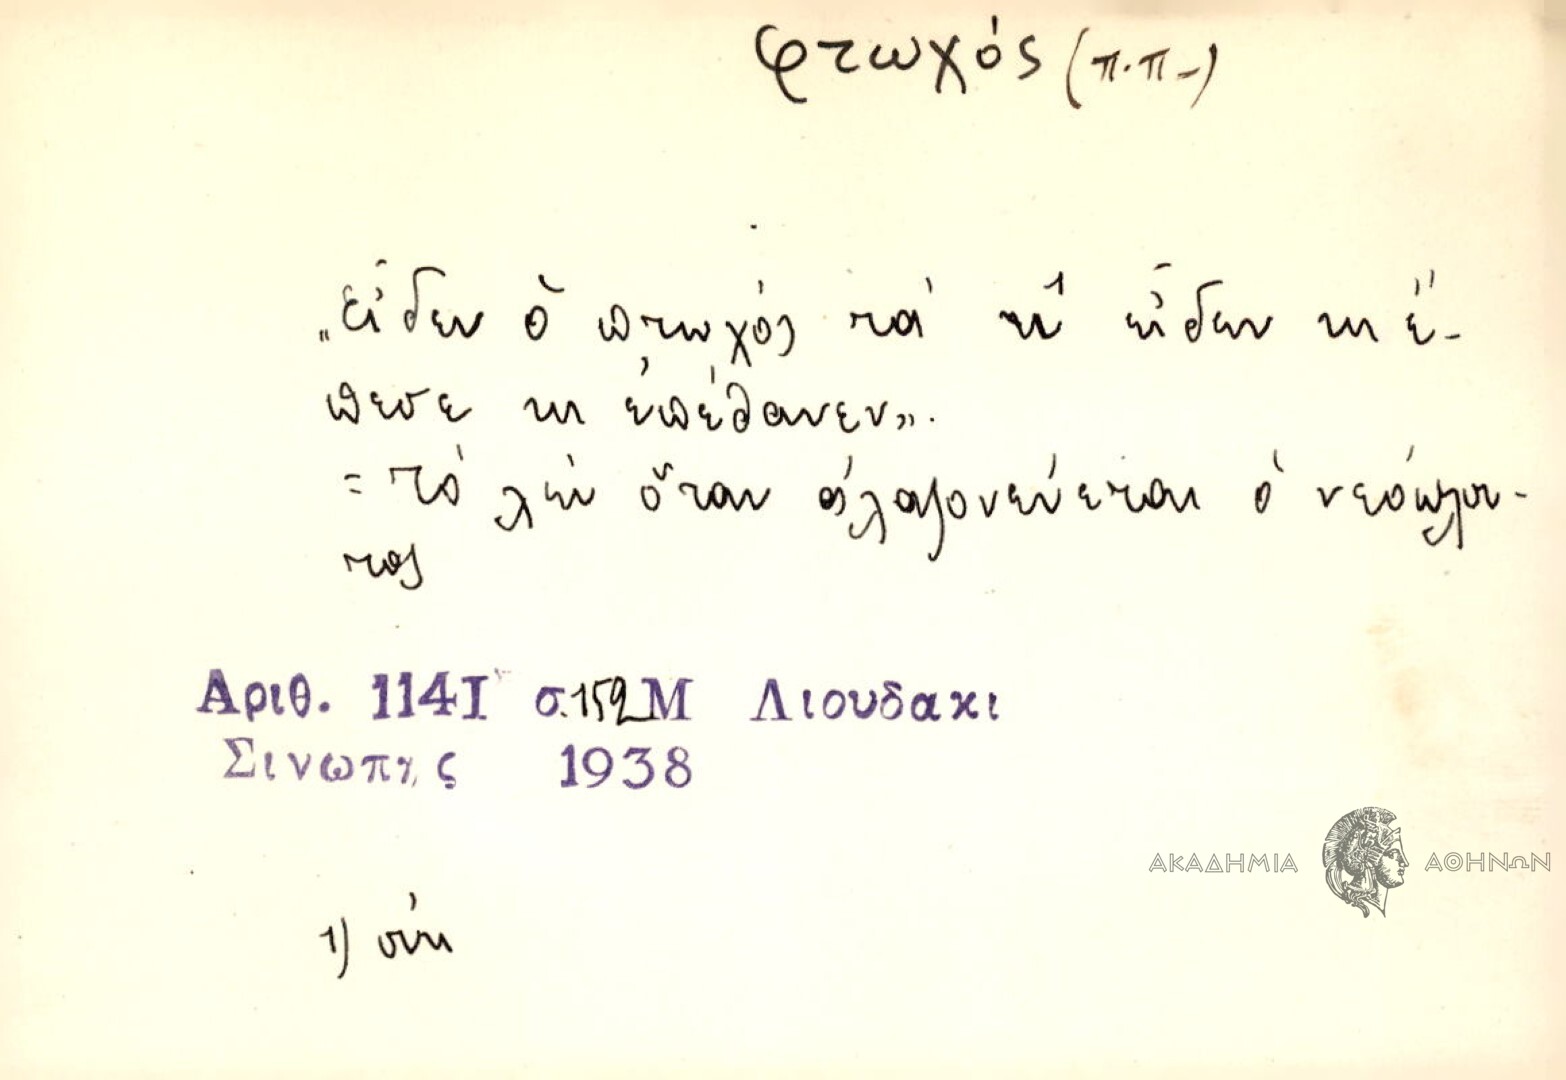 φτωχός (π.π–)
„εἶδεν ὁ πτωχός τά κι¹ εἶδεν κι ἔ-
πεσε κι ἐπέθανεν».
= Τό λέν ὅταν ἀλαζονεύεται ὁ νεόπλου-
τος
Αριθ. 1141 σ.152 Μ Λιουδακι
Σινωπης 1938
ΑΚΑΔΗΜΙΑ ΑΘΗΝΩΝ
1) οὐκι